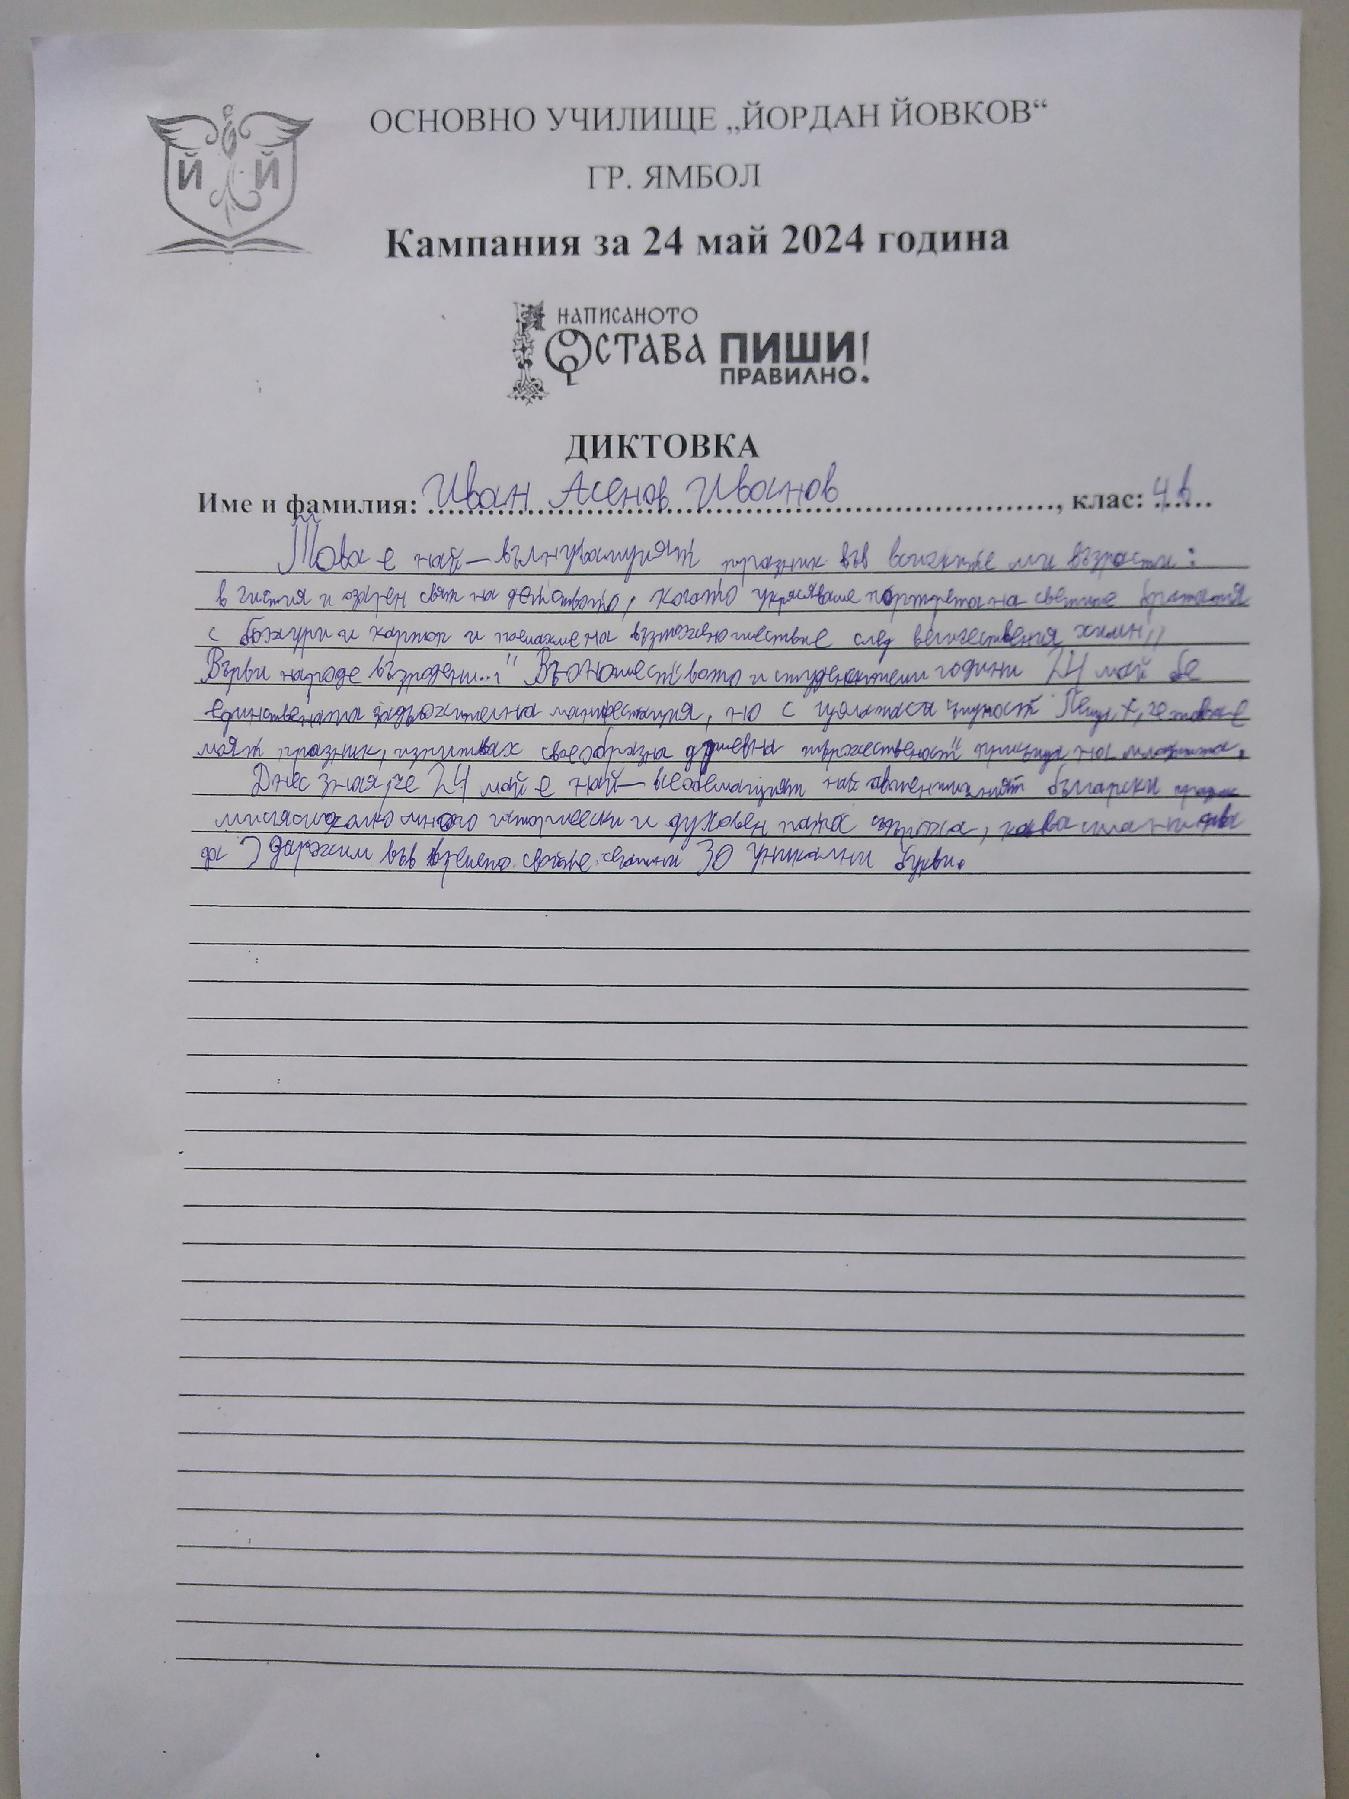 ОСНОВНО УЧИЛИЩЕ „ЙОРДАН ЙОВКОВ“
Й Й
ГР. ЯМБОЛ
Кампания за 24 май 2024 година
НАПИСАНОТО
ОСТАВА ПИШИ!
ПРАВИЛНО.
ДИКТОВКА
Име и фамилия: Иван Асенов Иванов, клас: 4 в
Това е най-вълнуващият празник във всичките ми възрасти:
в чистия и озарен свят на детството, когато украсяваме портрета на светите братя
с божури и хартии и на възтожено шествие след величествения химн „
Върви народе възродени..." В юношеството и студентски години 24 май бе
единствената задължителна манифестация, но с цялата си същност че това е
моят празник, изпитвах своеобразна душевна тържественост на младостта.
Днес зная, че 24 май е най-всеобемащият най български
колко много исторически и духовен
да държим във времето своите 30 уникални букви.